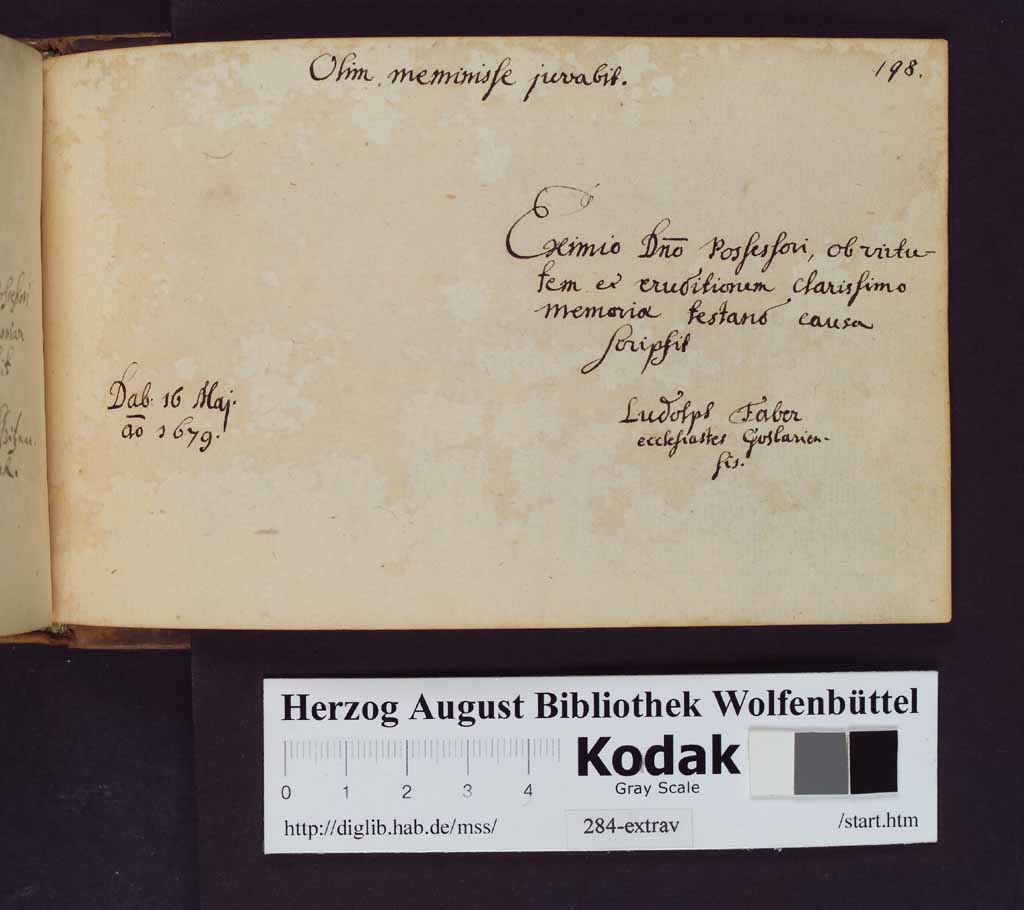 198.
Olim meminisse juvabit.
Eximio Dn̄o Possessori, ob virtu-
tem et eruditionem clarissimo
memoriæ testand causa
scripsit
Ludolph Faber
ecclesiastes Goslarien-
sis.
Dab. 16 Maj.
ao 1679.
Herzog August Bibliothek Wolfenbüttel
Kodak
Gray Scale
0 1 2 3 4
http://diglib.hab.de/mss/
284-extrav
/start.htm